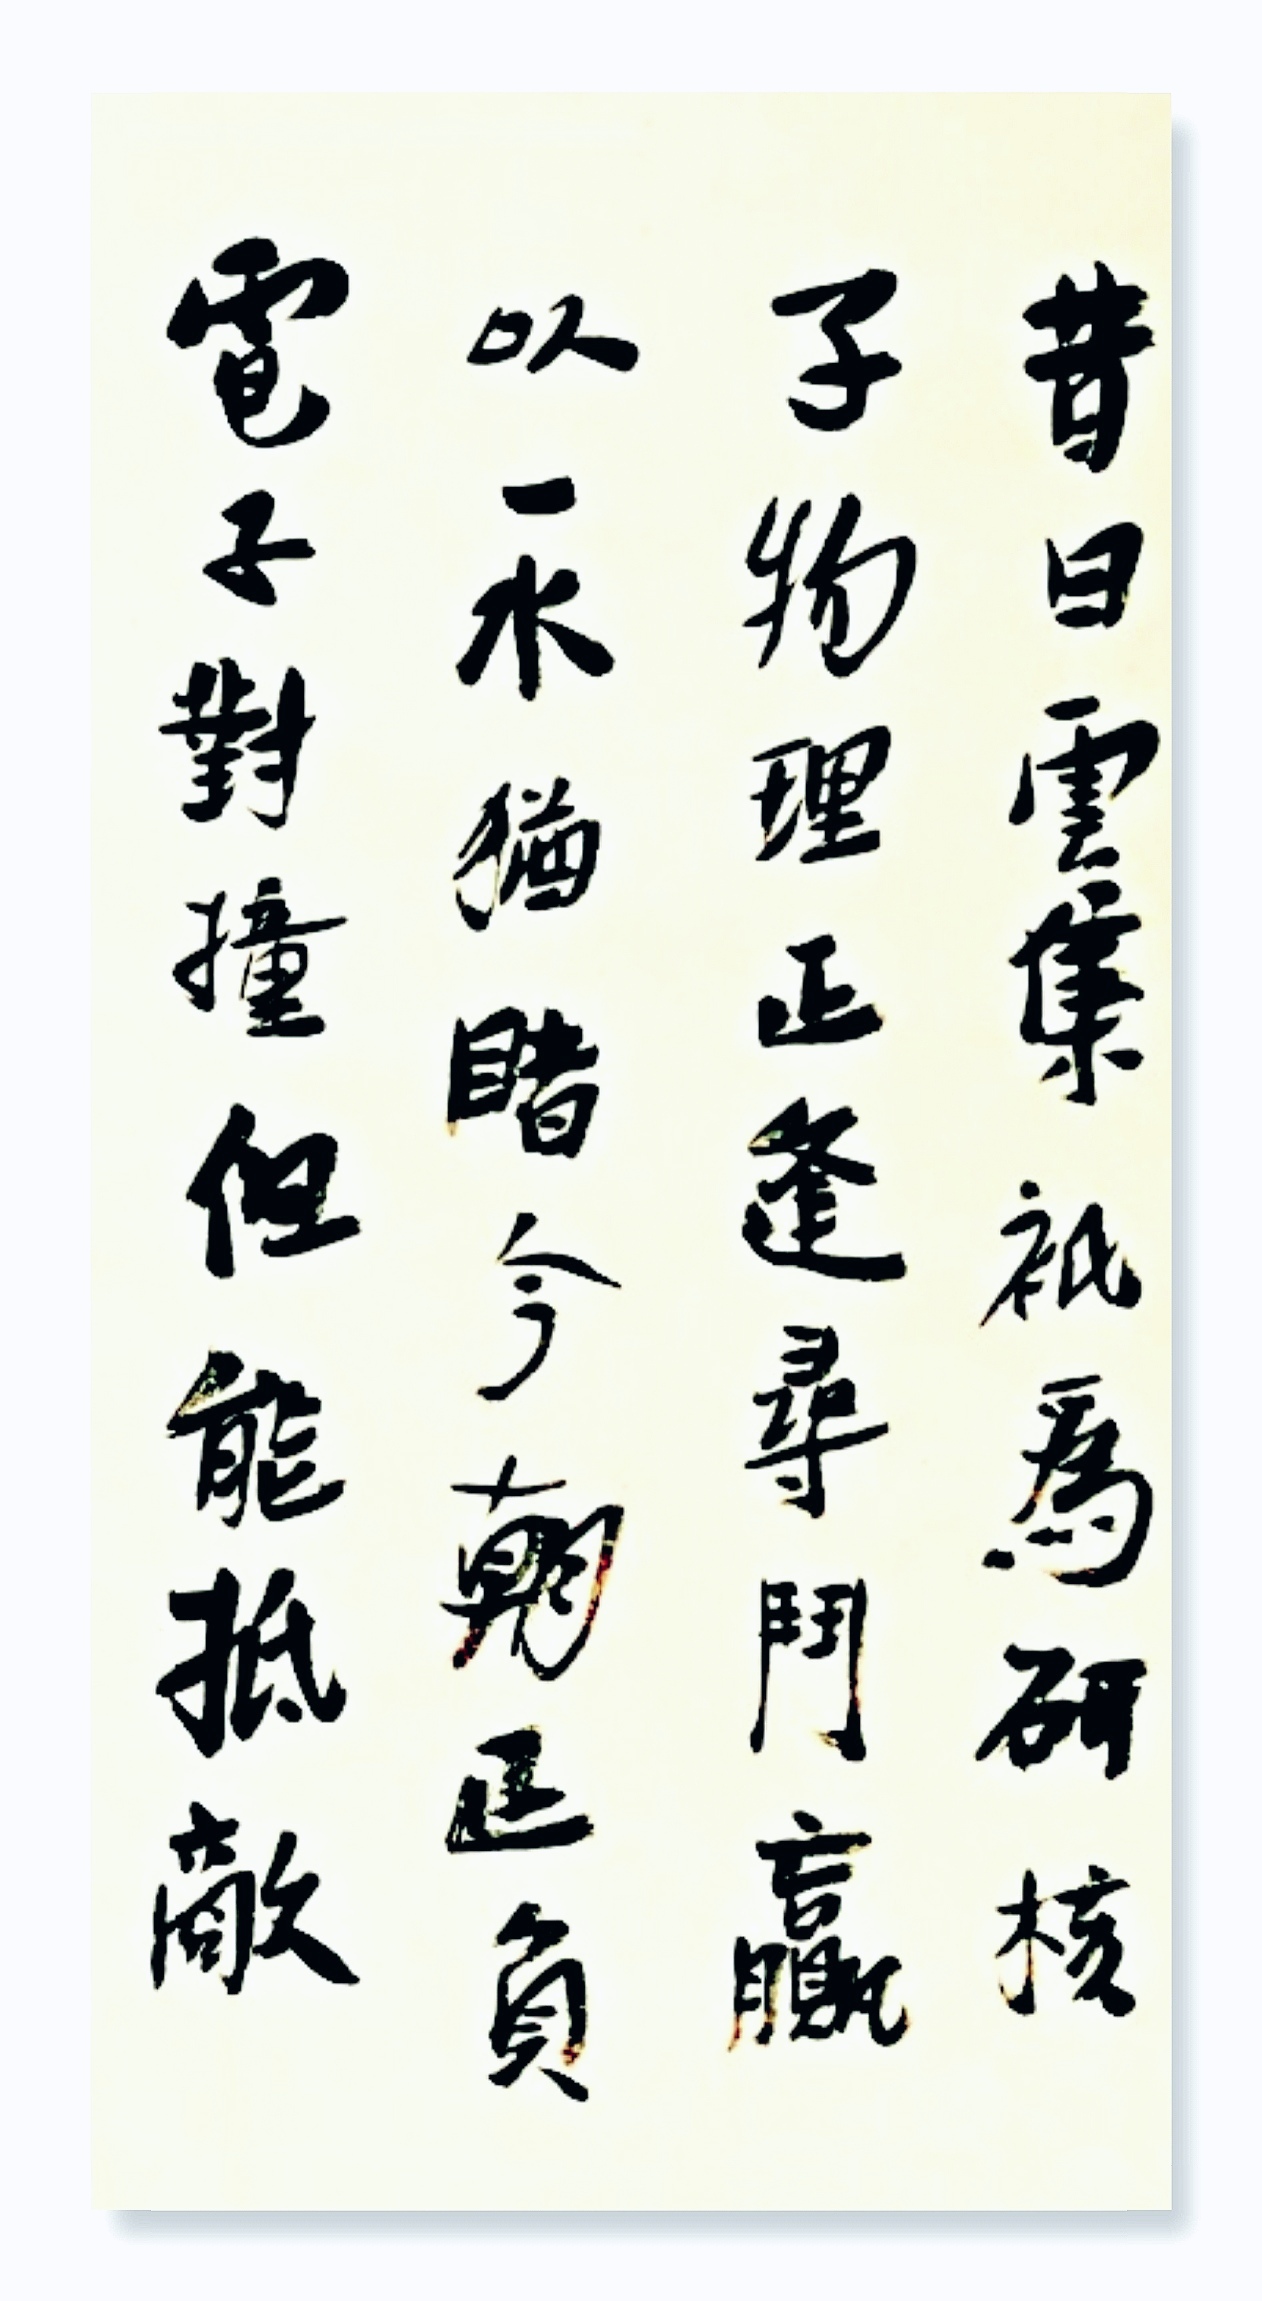 昔日雲集祇爲研核
子物理正逢尋鬥贏
以一水猶睹今朝正負
電子對撞但能抵敵